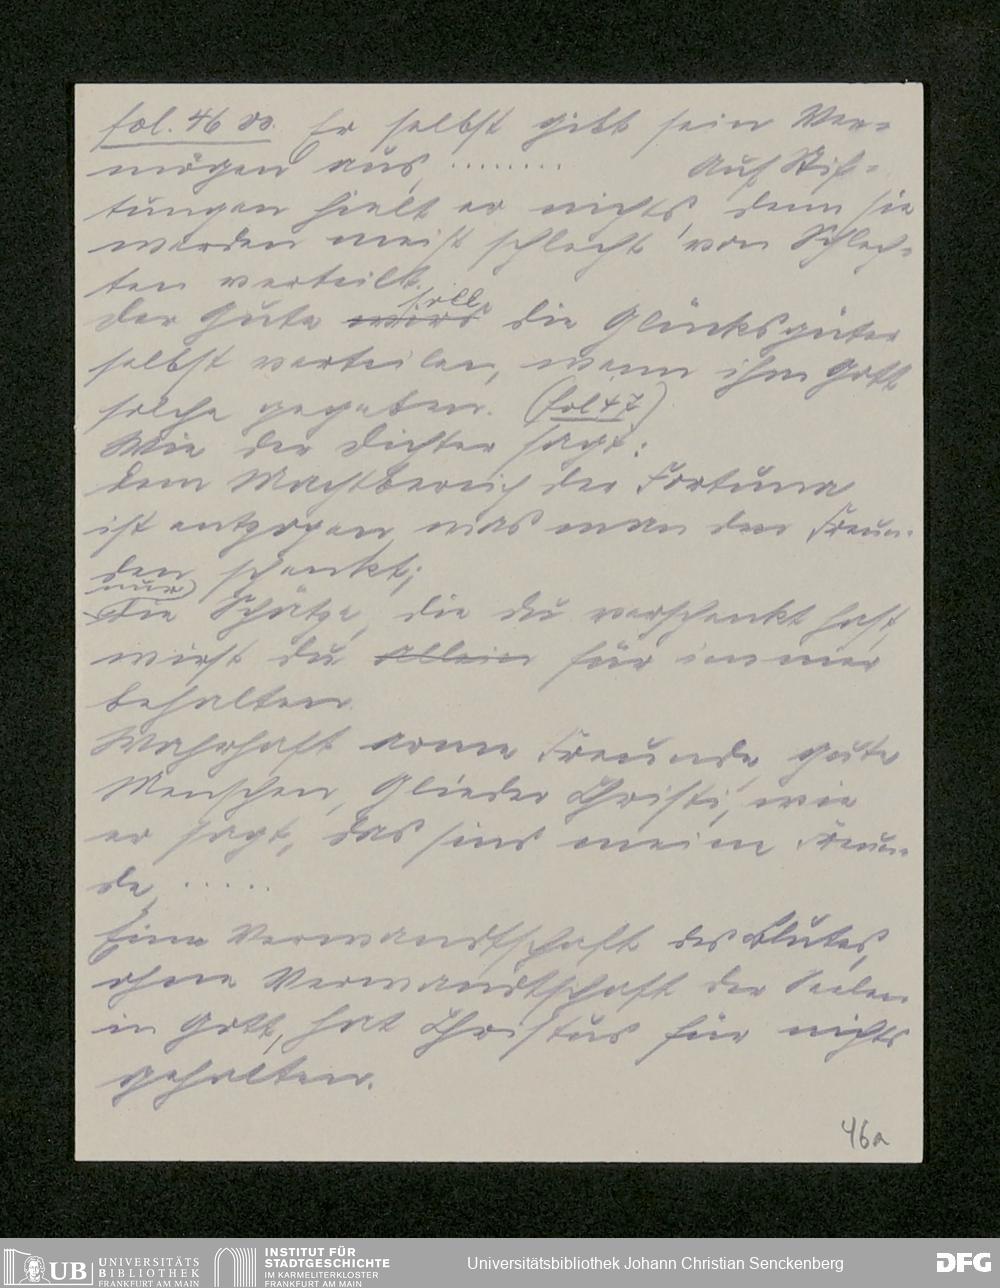 fol. 46 vo. Er selbst gibt sein Ver-
mögen aus, ........ Auf Stif-
tungen hielt er nichts, denn sie
werden meist schlecht von Schlech-
ten verteilt.
soll
Der Gute wird die Glücksgüter
selbst verteilen, wenn ihm Gott
solche gegeben. (fol 47)
Wie der Dichter sagt:
Dem Machtbereich der Fortuna
ist entzogen, was man den Freun-
den schenkt;
nur
Die Schätze, die du verschenkt hast,
wirst du allein für immer
behalten.
Wahrhaft arme Freunde, gute
Menschen, Glieder Christi, wie
er sagt, das sind meine Freun-
de, .....
Eine Verwandtschaft des Blutes,
ohne Verwandtschaft der Seelen
in Gott, hat Christus für nichts
gehalten.
46a
UB UNIVERSITÄTS BIBLIOTHEK FRANKFURT AM MAIN
INSTITUT FÜR STADTGESCHICHTE IM KARMELITERKLOSTER FRANKFURT AM MAIN
Universitätsbibliothek Johann Christian Senckenberg
DFG